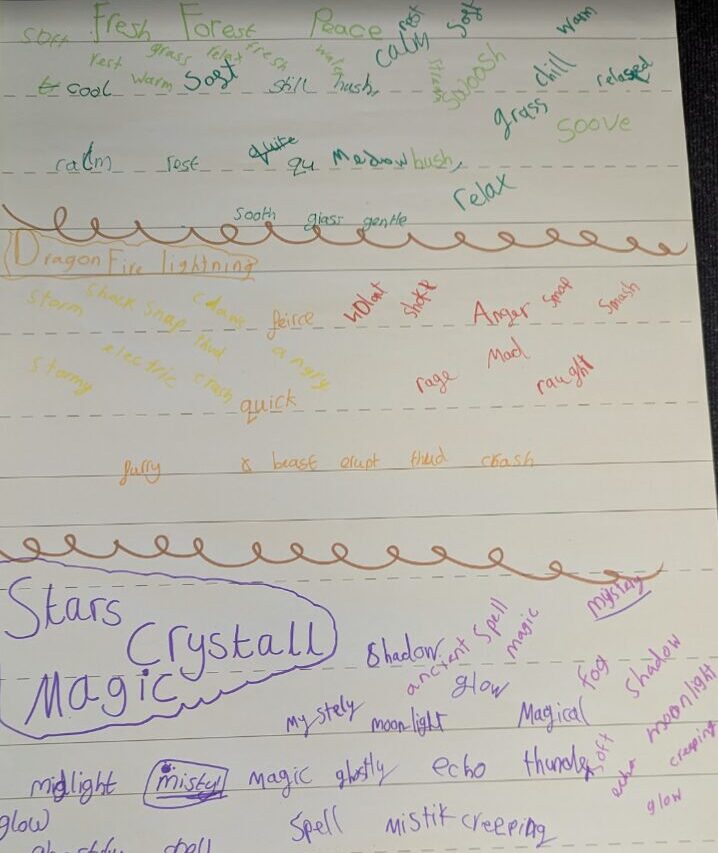 soft Fresh Forest Peace calm rest soft warm
rest grass relax fresh water
cool warm soft still hush, swoosh chill relaxed
grass soove
calm rest quite qu Meadow hush,
relax
sooth glass gentle
Dragon Fire lightning
storm shock snap feirce Anger snap smash
stormy electric thud crash angry rage Mad raught
quick
furry beast erupt thud crash
Stars
Crystall
Magic
Shadow ancient spell magic mystery
glow fog shadow
mystely moonlight Magical moonlight
midlight misty magic ghostly echo thunder soft creeping
glow Spell mistik creeping glow
spell